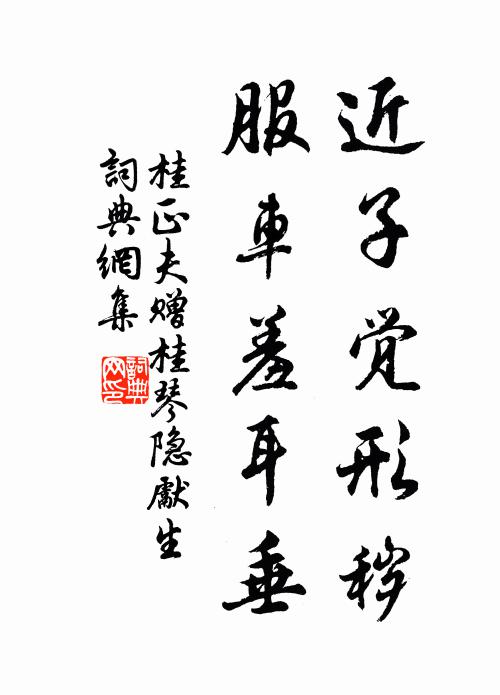 近子觉形秽
服車羞耳垂
桂正夫赠桂琴隐獻生
詞典網集
詞典网印